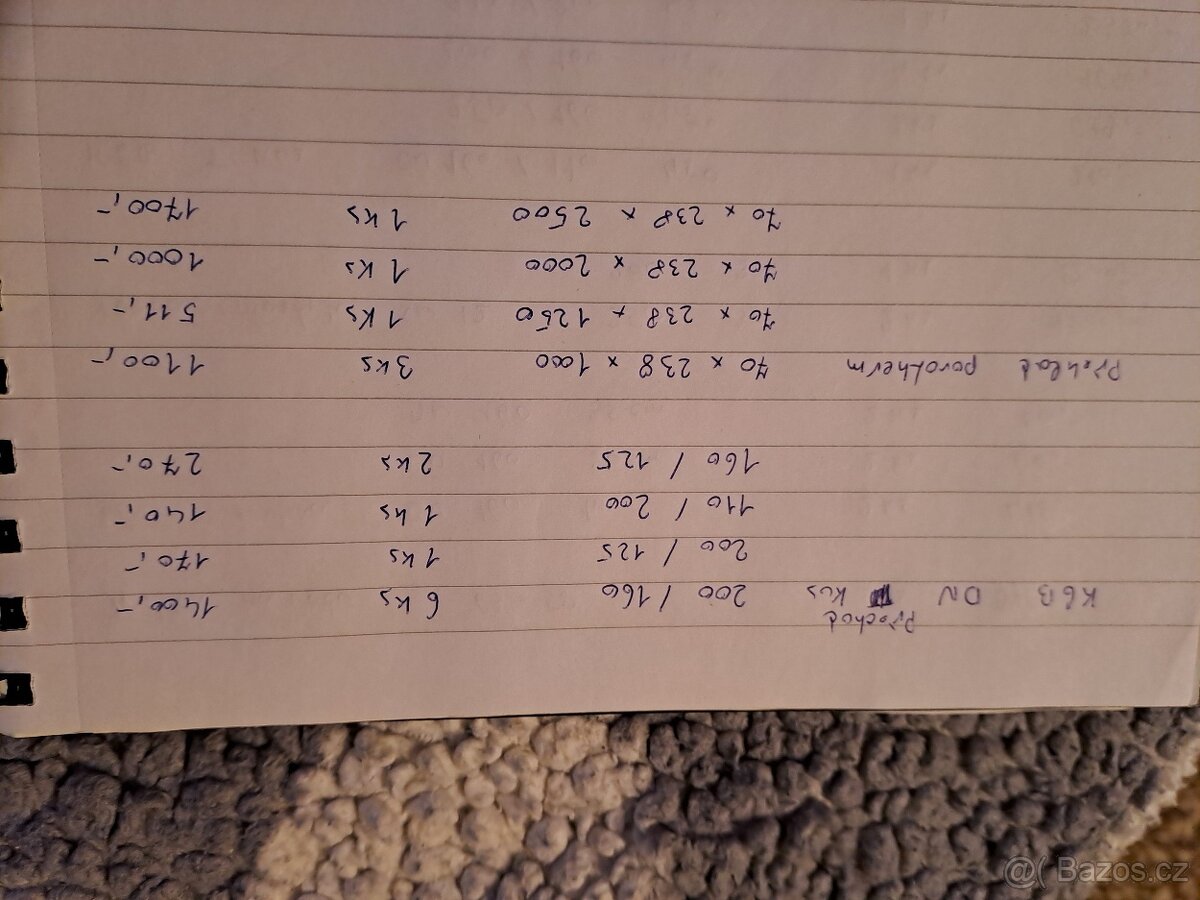 Přechod
KGB DN kus 200 / 160 6 ks 1400,-
200 / 125 1 ks 170,-
110 / 200 1 ks 140,-
160 / 125 2 ks 270,-
Překlad porotherm 70 x 238 x 1000 3 ks 1100,-
70 x 238 x 1250 1 ks 511,-
70 x 238 x 2000 1 ks 1000,-
70 x 238 x 2500 1 ks 1700,-
@( Bazos.cz